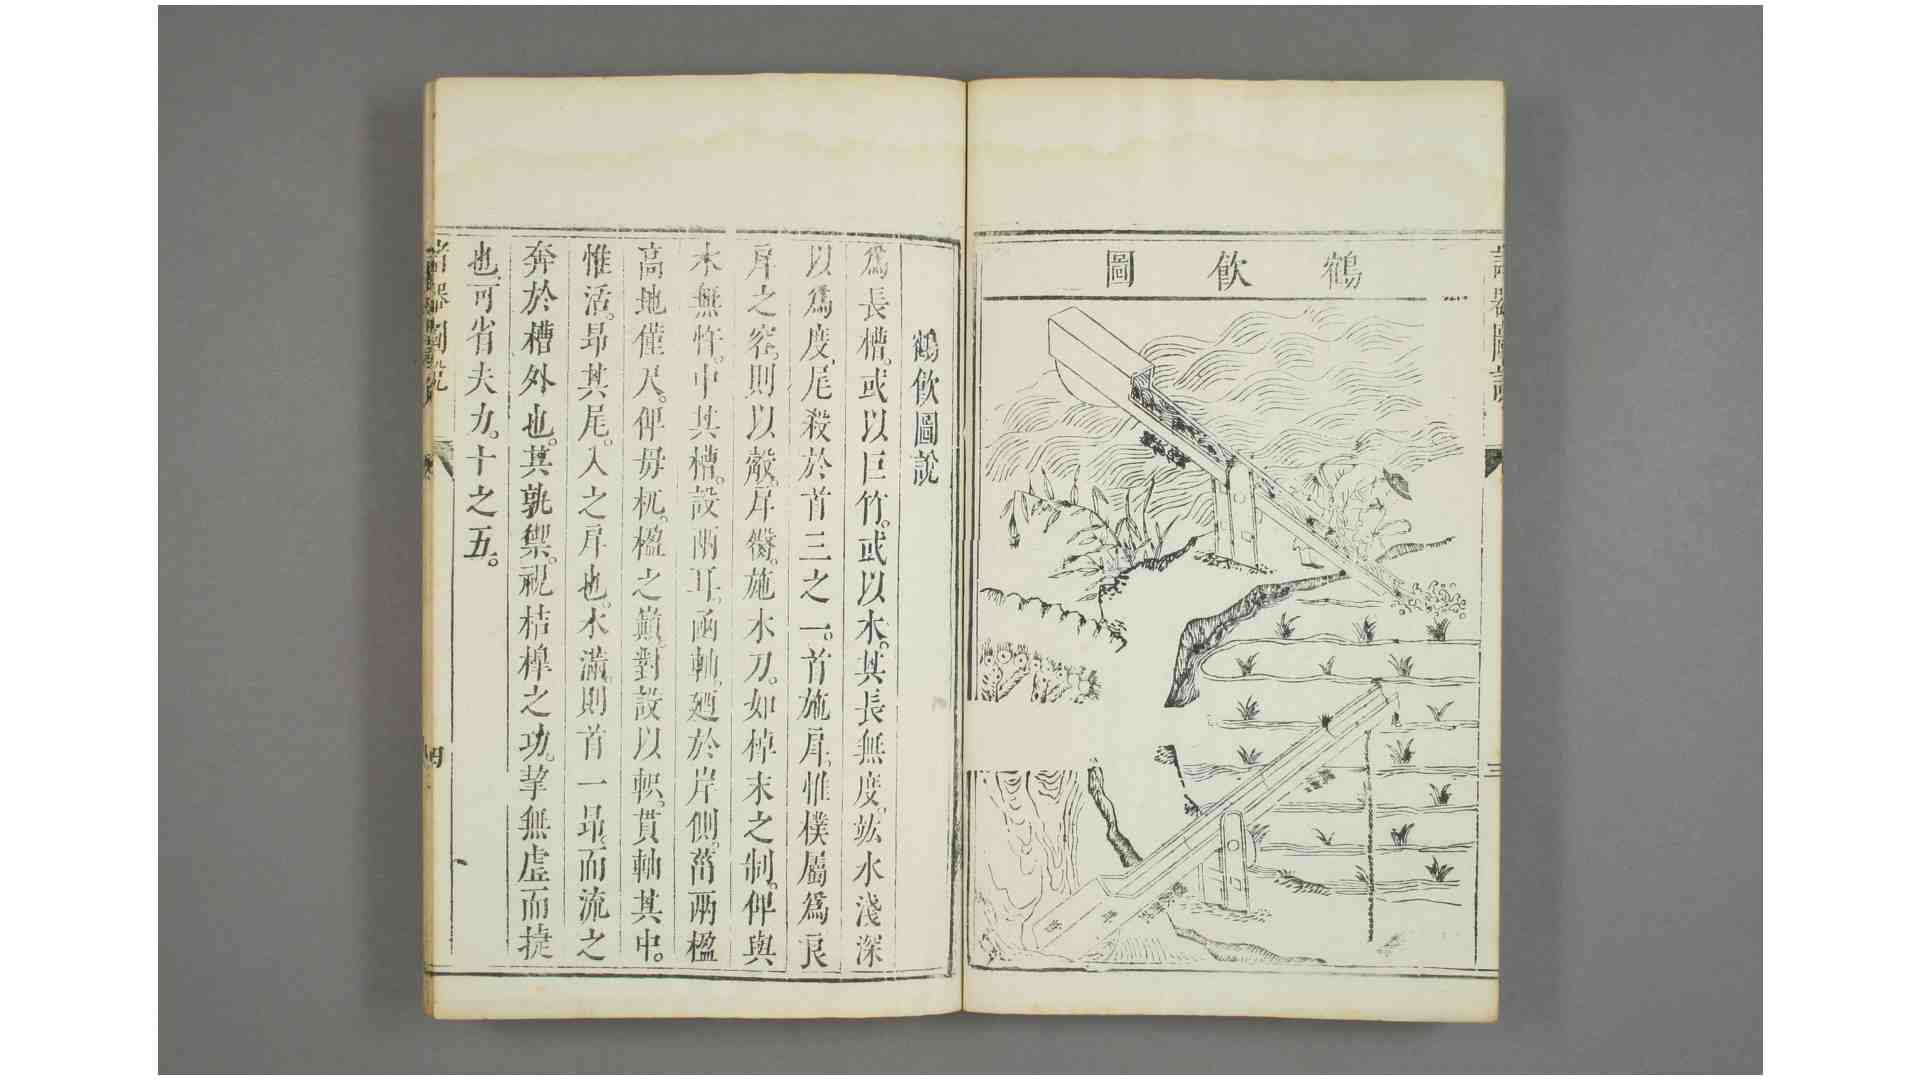 諸器圖說
三
鶴飲圖
鶴飲圖說
爲長槽。或以巨竹。或以木。其長無度。竑水淺深
以爲度。尾殺於首三之一。首施戽。惟樸屬爲良
戽之容。則以觳。戽衡。施水刀。如棹末之制。俾與
水無忤。中其槽。設兩耳。函軸。迺於岸側。菑兩楹
高地僅尺。俾毋杌。楹之巔。對設以軹。貫軸其中。
惟活。昂其尾。入之戽也。水滿。則首一昂。而流之
奔於槽外也。其孰禦。視桔槹之功。挈無虛而捷
也。可省夫力。十之五。
諸器圖說
四